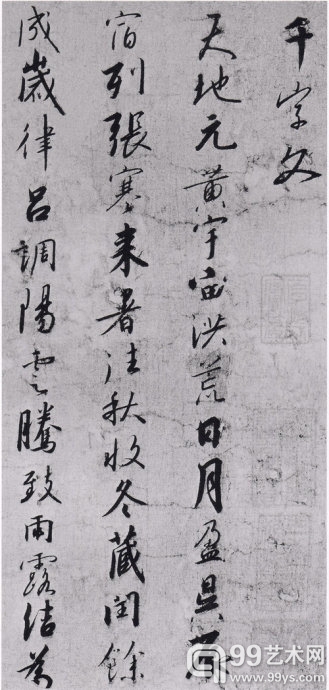 千字文
天地元黃宇宙洪荒日月盈昃辰
宿列張寒来暑往秋收冬藏閏餘
成歲律呂調陽雲騰致雨露結為
99艺术网
www.99ys.com